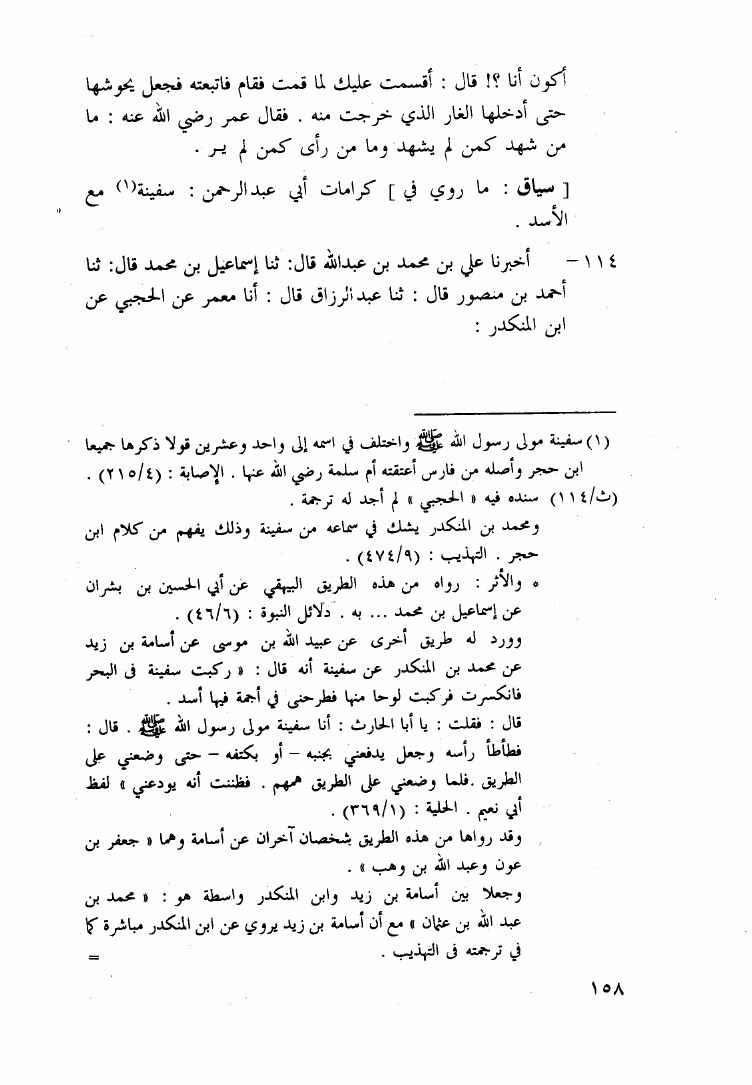 أكون أنا ؟! قال : أقسمت عليك لما قمت فقام فاتبعته فجعل يحوشها
حتى أدخلها الغار الذي خرجت منه . فقال عمر رضي الله عنه : ما
من شهد كمن لم يشهد وما من رأى كمن لم يـر .
[ سياق : ما روي في ] كرامات أبي عبدالرحمن : سفينة(١) مع
الأسد .
١١٤ – أخبرنا علي بن محمد بن عبدالله قال: ثنا إسماعيل بن محمد قال: ثنا
أحمد بن منصور قال : ثنا عبدالرزاق قال : أنا معمر عن الحجبي عن
ابن المنكدر :
(١) سفينة مولى رسول الله ﷺ واختلف في اسمه إلى واحد وعشرين قولا ذكرها جميعا
ابن حجر وأصله من فارس أعتقته أم سلمة رضي الله عنها . الإصابة : (٢١٥/٤) .
(ث/١١٤) سنده فيه « الحجبي » لم أجد له ترجمة .
ومحمد بن المنكدر يشك في سماعه من سفينة وذلك يفهم من كلام ابن
حجر . التهذيب : (٤٧٤/٩) .
* والأثر : رواه من هذه الطريق البيهقي عن أبي الحسين بن بشران
عن إسماعيل بن محمد ... به . دلائل النبوة : (٤٦/٦) .
وورد له طريق أخرى عن عبيد الله بن موسى عن أسامة بن زيد
عن محمد بن المنكدر عن سفينة أنه قال : « ركبت سفينة فى البحر
فانكسرت فركبت لوحا منها فطرحنى في أجمة فيها أسد .
قال : فقلت : يا أبا الحارث : أنا سفينة مولى رسول الله ﷺ . قال :
فطأطأ رأسه وجعل يدفعني بجنبه – أو بكتفه – حتى وضعني على
الطريق .فلما وضعني على الطريق همهم . فظننت أنه يودعني » لفظ
أبي نعيم . الحلية : (٣٦٩/١) .
وقد رواها من هذه الطريق شخصان آخران عن أسامة وهما « جعفر بن
عون وعبد الله بن وهب » .
وجعلا بين أسامة بن زيد وابن المنكدر واسطة هو : « محمد بن
عبد الله بن عثمان » مع أن أسامة بن زيد يروي عن ابن المنكدر مباشرة كما
في ترجمته فى التهذيب .
=
١٥٨